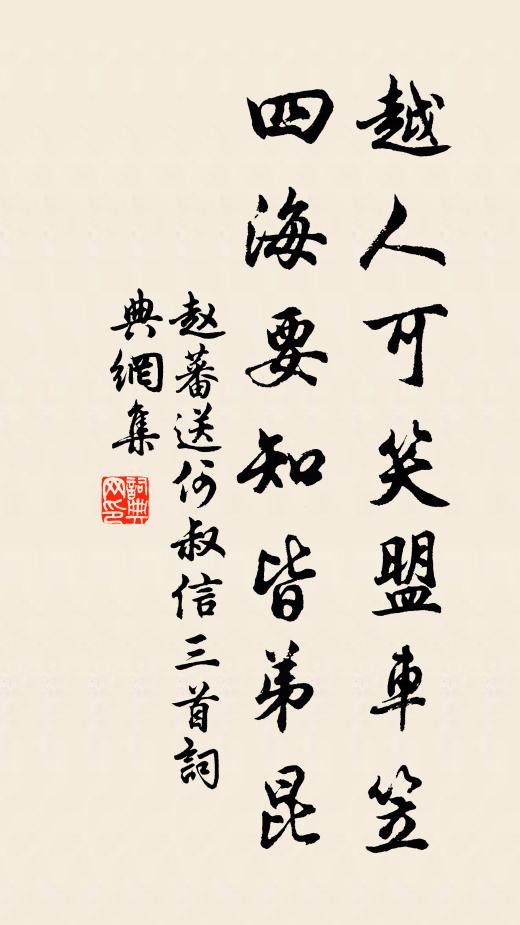 越人可笑盟車笠
四海要知皆弟昆
赵蕃送何叔信三首詞
典網集
詞典
网印